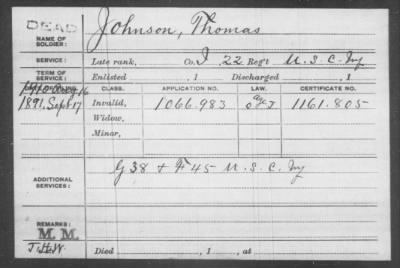 DEAD
NAME OF SOLDIER: Johnson, Thomas
SERVICE: Late rank, Co. I, 22 Reg't U. S. C. Inf
TERM OF SERVICE: Enlisted , 1 Discharged , 1
DATE OF FILING. CLASS. APPLICATION NO. LAW. CERTIFICATE NO.
1910 Aug 16
1891, Sept 17 Invalid, 1066.983 1161.805
Widow,
Minor,
ADDITIONAL SERVICES: G 38 + F 45 U. S. C. Inf
REMARKS:
M. M.
J.H.W.
Died , 1 , at